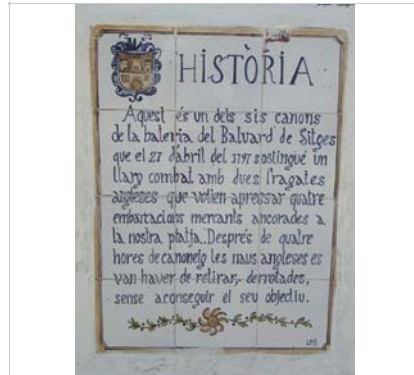 HISTÒRIA
Aquest és un dels sis canons
de la bateria del Baluard de Sitges
que el 27 d'abril del 1797 sostingué un
llarg combat amb dues fragates
angleses que volien apressar quatre
embarcacions mercants ancorades a
la nostra platja. Després de quatre
hores de canoneig les naus angleses es
van haver de retirar, derrotades,
sense aconseguir el seu objectiu.